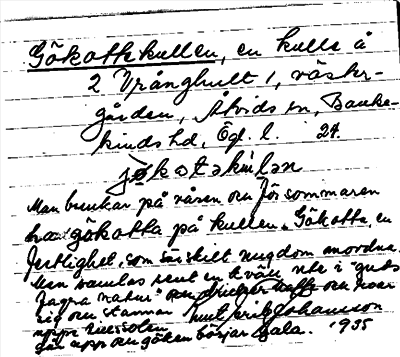 Gökottekullen, en kulle å
2 Vrånghult 1, väster-
gården, Åtvids sn, Banke-
kinds hd, Ögl. l. 24.
Man brukar på våren o. försommaren
ha gökotta på kullen. Gökotta, en
festlighet, som särskilt ungdom anordna.
Man samlas sent en kväll ute i "guds
fagra natur" o. dricker kaffe o. roar
sig o. stannar
uppe tills solen
går upp o. göken börjar gala. 1935